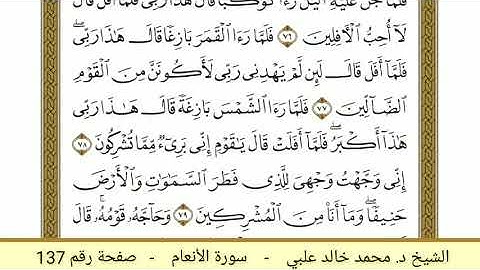 فَلَمَّا جَنَّ عَلَيْهِ ٱلَّيْلُ رَءَا كَوْكَبًا قَالَ هَٰذَا رَبِّى فَلَمَّآ أَفَلَ قَالَ
لَآ أُحِبُّ ٱلْءَافِلِينَ ٧٦ فَلَمَّا رَءَا ٱلْقَمَرَ بَازِغًا قَالَ هَٰذَا رَبِّى ۖ
فَلَمَّآ أَفَلَ قَالَ لَئِن لَّمْ يَهْدِنِى رَبِّى لَأَكُونَنَّ مِنَ ٱلْقَوْمِ
ٱلضَّآلِّينَ ٧٧ فَلَمَّا رَءَا ٱلشَّمْسَ بَازِغَةً قَالَ هَٰذَا رَبِّى
هَٰذَآ أَكْبَرُ ۖ فَلَمَّآ أَفَلَتْ قَالَ يَٰقَوْمِ إِنِّى بَرِىٓءٌ مِّمَّا تُشْرِكُونَ ٧٨
إِنِّى وَجَّهْتُ وَجْهِىَ لِلَّذِى فَطَرَ ٱلسَّمَٰوَٰتِ وَٱلْأَرْضَ
حَنِيفًا ۖ وَمَآ أَنَا۠ مِنَ ٱلْمُشْرِكِينَ ٧٩ وَحَآجَّهُۥ قَوْمُهُۥ ۚ قَالَ
الشيخ د. محمد خالد علبي - سورة الأنعام - صفحة رقم 137